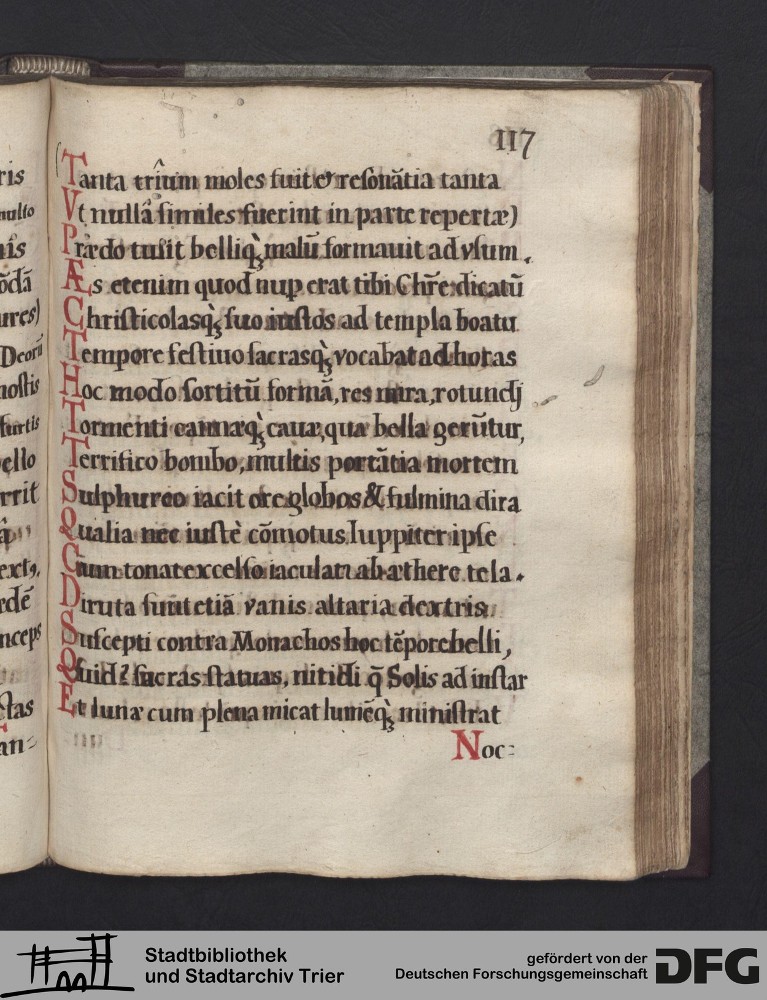 117
Tanta triûm moles fuit & resonãtia tanta
Vt nullã similes fuerint in parte repertæ)
Prædo tulit belliq̀; malũ formauit ad vsum.
Æs etenim quod nup erat tibi Chr̃e dicatũ
Christicolasq̀; suo iustos ad templa boatu
Tempore festiuo sacrasq̀; vocabat ad horas
Hoc modo sortitũ formã, res mira, rotundj
Tormenti cannæq̀; cauæ, qua bella gerũtur,
Terrifico bombo, multis portãtia mortem
Sulphureo iacit ore globos & fulmina dira
Qualia nec iustè cõmotus Iuppiter ipse
Cum tonat excelso iaculatr ab æthere tela.
Diruta sunt etiã vanis altaria dextris
Suscepti contra Monachos hoc tẽpore belli,
Quid? sacrás statuas, nitidi q̃ Solis ad instar
Et lunæ cum plena micat lumẽq̀; ministrat
Noc=
ris
multo
nis
õdã
ures)
Deorũ
nostis
furtis
ello
rrit
rdẽ
nceps
stas
an=
Stadtbibliothek
und Stadtarchiv Trier
gefördert von der
Deutschen Forschungsgemeinschaft
DFG